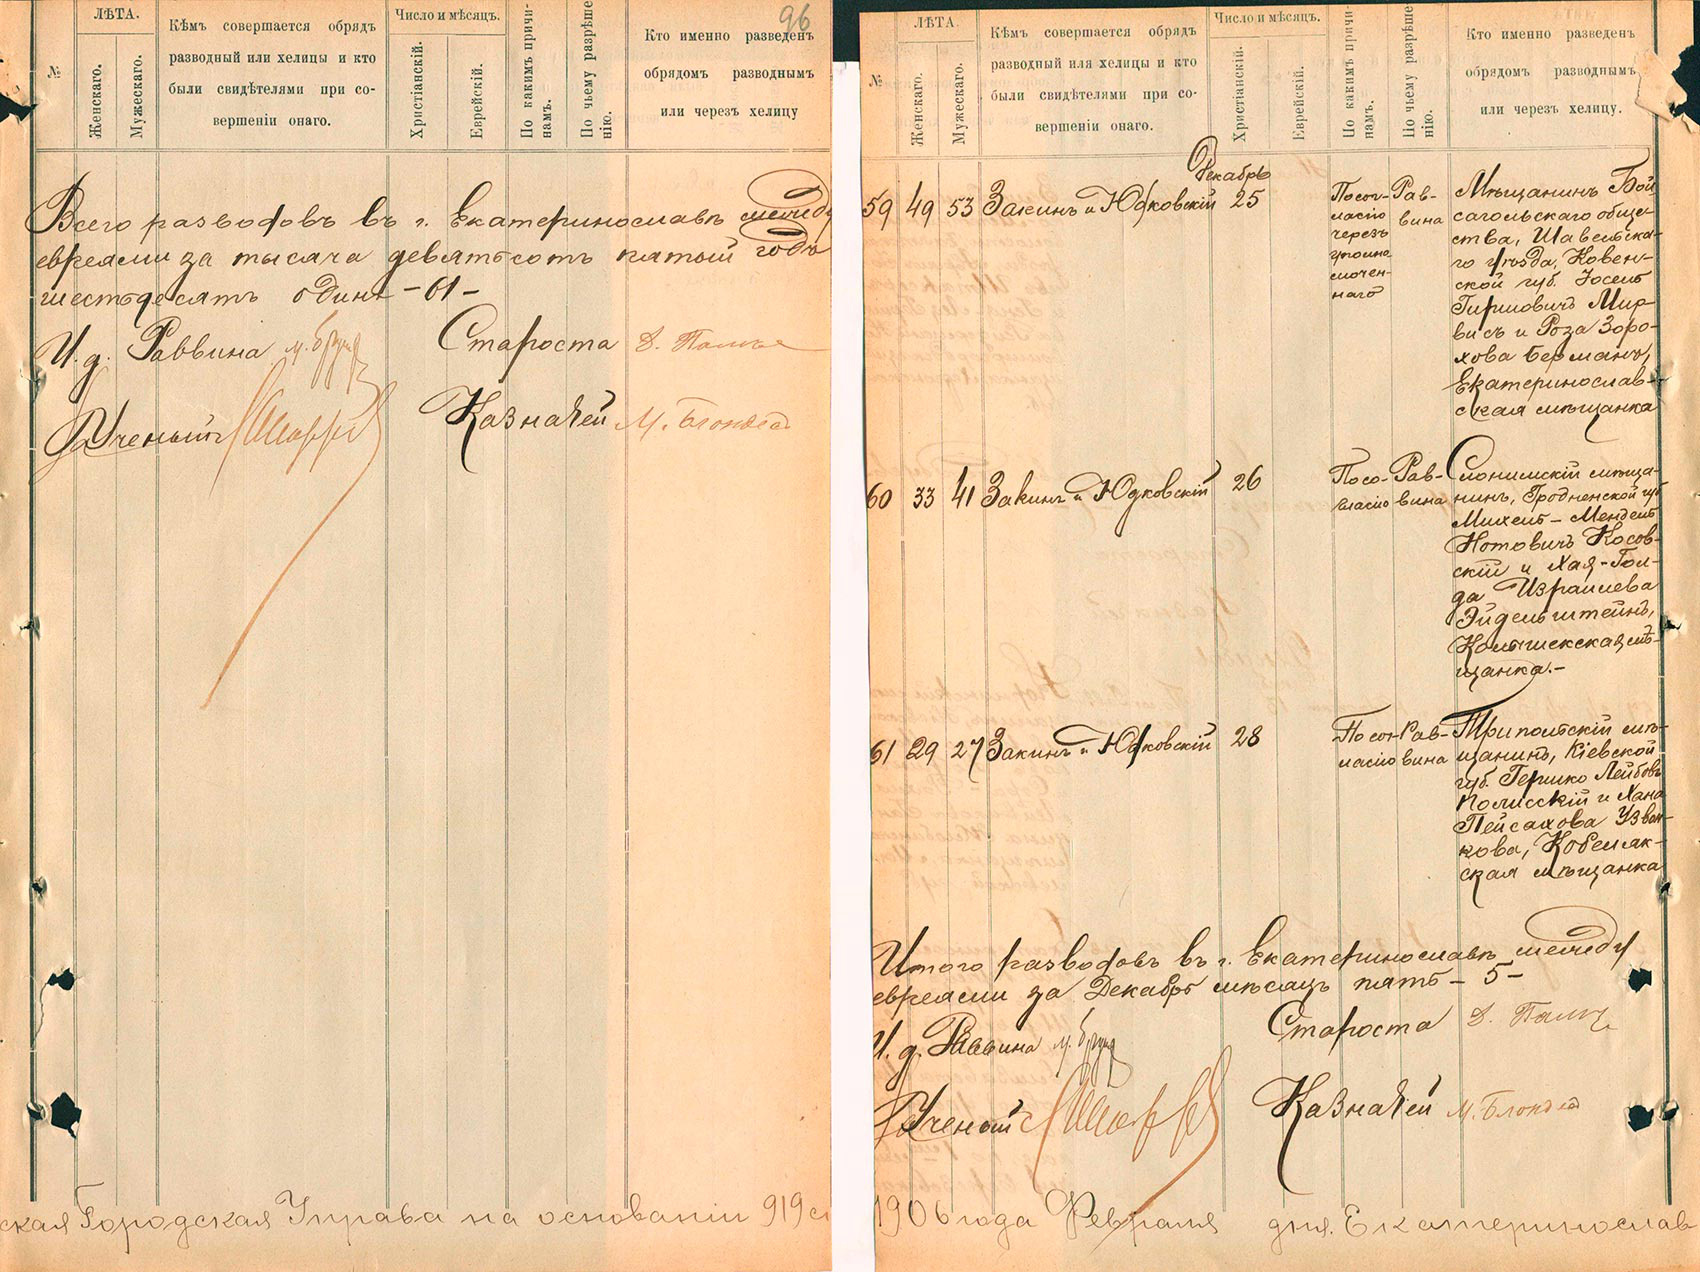 96
№
ЛѢТА.
Женскаго.
Мужескаго.
Кѣмъ совершается обрядъ
разводный или хелицы и кто
были свидѣтелями при со-
вершеніи онаго.
Число и мѣсяцъ.
Христіанскій.
Еврейскій.
По какимъ причи-
намъ.
По чьему разрѣше-
нію.
Кто именно разведенъ
обрядомъ разводнымъ
или черезъ хелицу
Всего разводовъ въ г. Екатеринославѣ между
евреями за тысяча девятьсотъ пятый годъ
шестьдесятъ одинъ -61-
И. д. Раввина
Староста
Ученый
Казначей
ская Городская Управа на основаніи 919 ст
№
ЛѢТА.
Женскаго.
Мужескаго.
Кѣмъ совершается обрядъ
разводный или хелицы и кто
были свидѣтелями при со-
вершеніи онаго.
Число и мѣсяцъ.
Христіанскій.
Еврейскій.
По какимъ причи-
намъ.
По чьему разрѣше-
нію.
Кто именно разведенъ
обрядомъ разводнымъ
или черезъ хелицу.
Декабрь
59 49 53 Закинъ и Юдковскій 25
Посог-
ласію
черезъ
уполно
мочен-
наго
Рав-
вина
Мѣщанинъ Вой
сагольскаго обще-
ства, Шавельска-
го уѣзда, Ковен-
ской губ. Іосель
Гиршовичъ Мир-
висъ и Роза Зоро-
хова Берманъ,
Екатеринослав-
ская мѣщанка
60 33 41 Закинъ и Юдковскій 26
Посо-
гласію
Рав-
вина
Слонимскій мѣща-
нинъ, Гродненской губ
Михель-Мендель
Нотовичъ Косов-
скій и Хая-Гол-
да Израилева
Эйдельштейнъ,
мѣ-
щанка.-
61 29 27 Закинъ и Юдковскій 28
Посог-
ласію
Рав-
вина
Трипольскій мѣ-
щанинъ, Кіевской
губ. Гершко Лейбовъ
Полисскій и Хана
Пейсахова
Кобеляк-
ская мѣщанка
Итого разводовъ въ г. Екатеринославѣ между
евреями за Декабрь мѣсяцъ пять - 5-
И. д. Раввина
Староста
Ученый
Казначей
1906 года Февраля дня. Екатеринослав